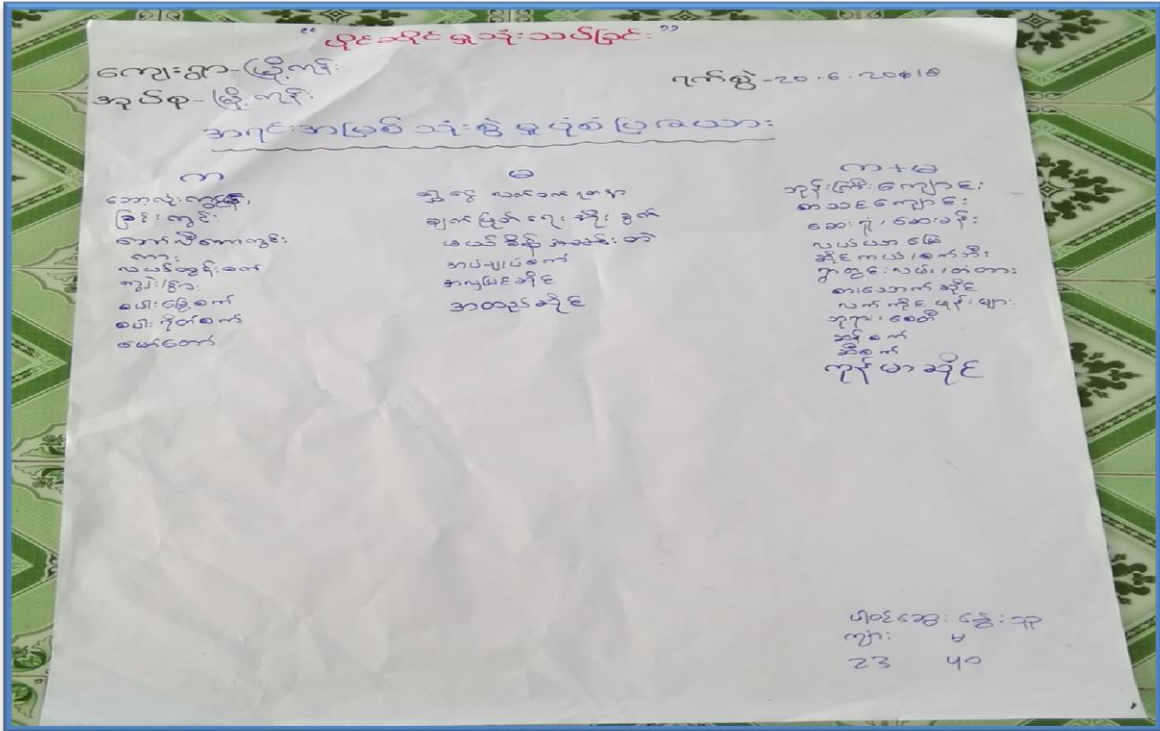 "ပိုင်ဆိုင်မှုသုံးသပ်ခြင်း"
ကျေးရွာ-မြို့ကုန်း
အုပ်စု-မြို့ကုန်း
ရက်စွဲ-၂၀.၆.၂၀၁၈
အရင်းအမြစ်သုံးစွဲမှုပုံစံပြဇယား
က
ဘောလုံးကွင်း
ခြင်းကွင်း
ဘော်လီဘောကွင်း
ကား
လယ်ထွန်းစက်
ကျွဲ၊နွား
စပါးခြွေစက်
စပါးရိတ်စက်
မော်တော်
မ
ရွှေ၊ ငွေ လက်ဝတ်ရတနာ
ချက်ပြုတ်ရေး အိုးခွက်
ဖယ်စိန် အသင်း တဲ
အပ်ချုပ်စက်
အလှပြင်ဆိုင်
အထည်ဆိုင်
က+မ
ဘုန်းကြီးကျောင်း
စာသင်ကျောင်း
ဆေးရုံ၊ဆေးခန်း
လယ်ယာမြေ
ဆိုင်ကယ်၊စက်ဘီး
ရွာတွင်းလမ်း၊တံတား
စားသောက်ဆိုင်
လက်ကိုင်ဖုန်းများ
ဘုရား၊စေတီ
ဆန်စက်
ဆီစက်
ကုန်မာဆိုင်
ပါဝင်ဆွေးနွေးသူ
ကျား မ
23 ၄၀